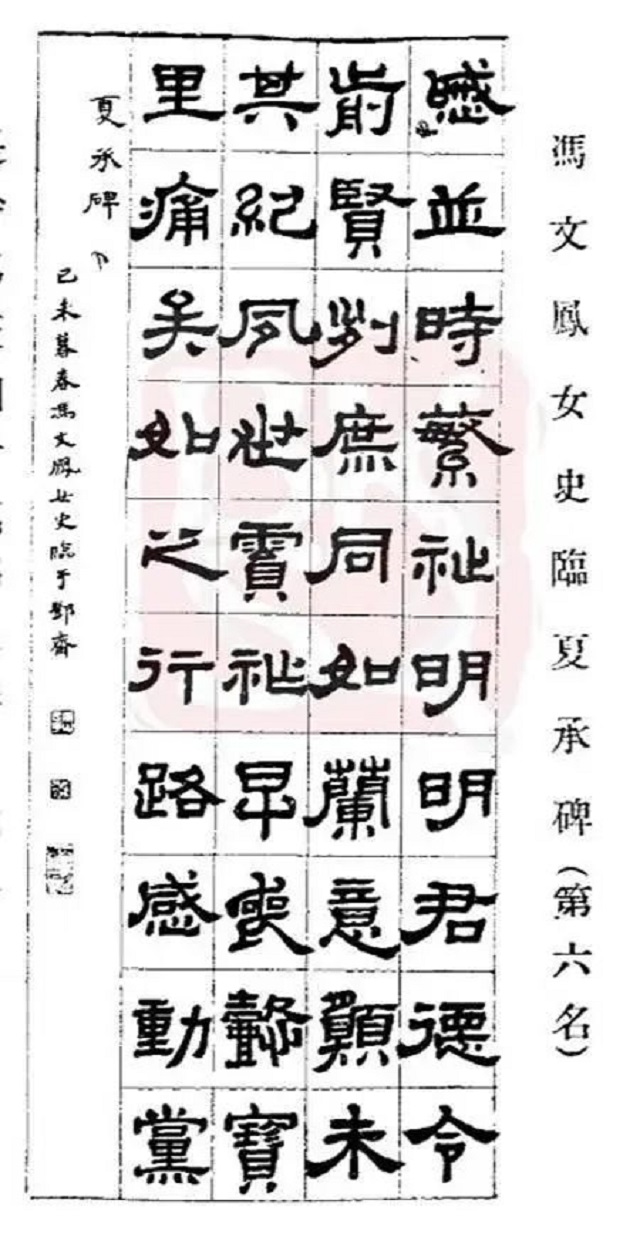 馮文鳳女史臨夏承碑(第六名)
慼並時繁祉明明君德令
前賢列庶同如蘭意願未
其紀夙世霣祚早喪懿寶
里痛矣如之行路感動黨
夏承碑
己未暮春馮文鳳女史臨于鄧齋